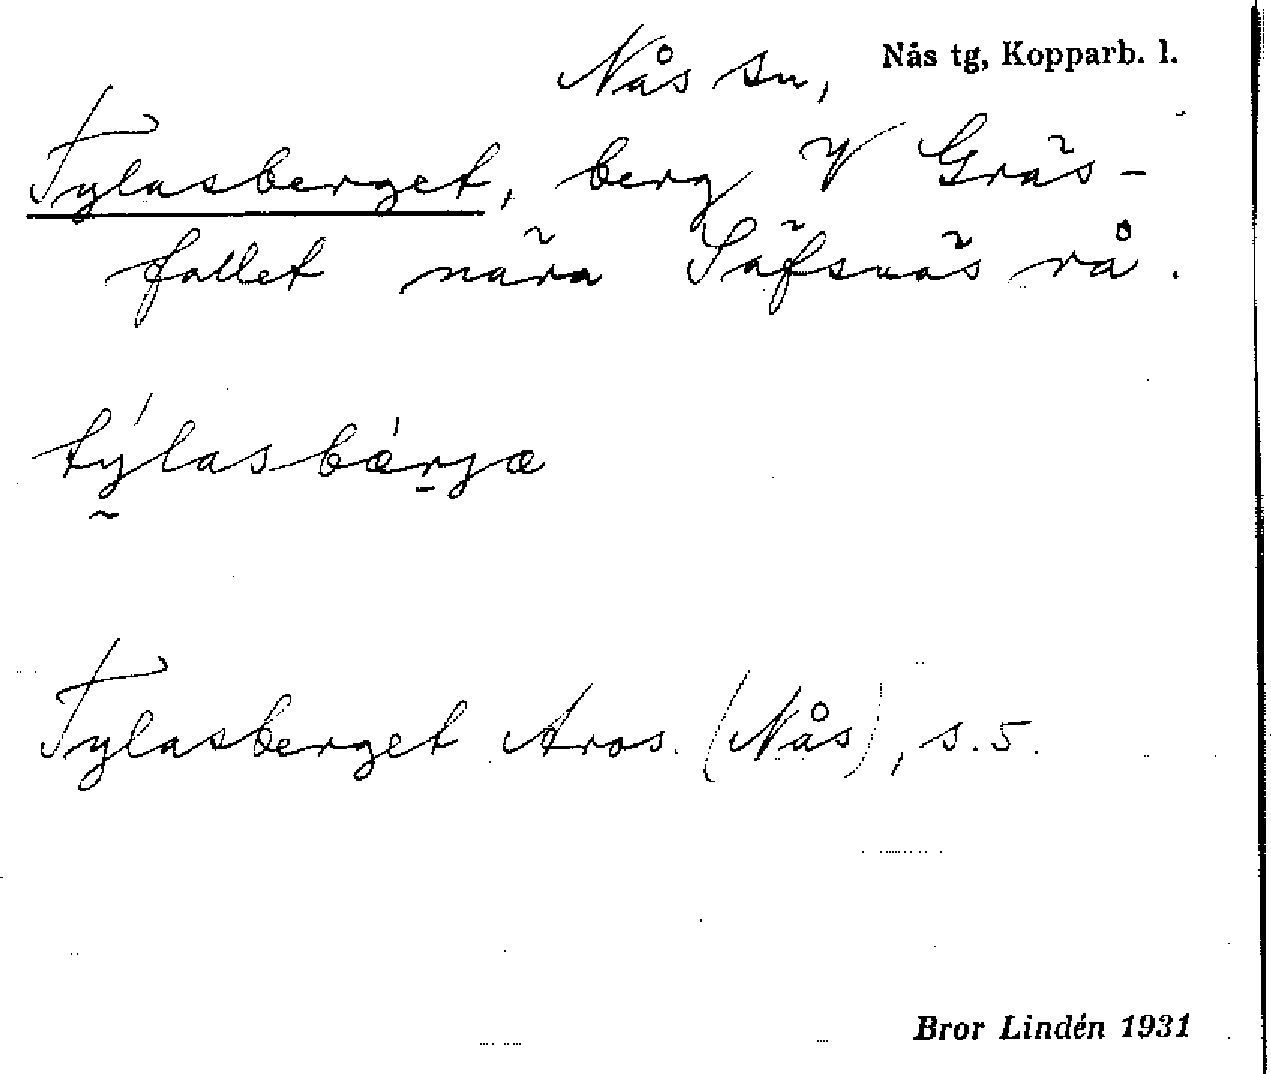 Nås sn, Nås tg, Kopparb. l.
Tylasberget, berg V Gräs-
fallet nära Säfsnäs rå.
týlasbǽrjæ
Tylasberget Aros. (Nås), s. 5.
Bror Lindén 1931